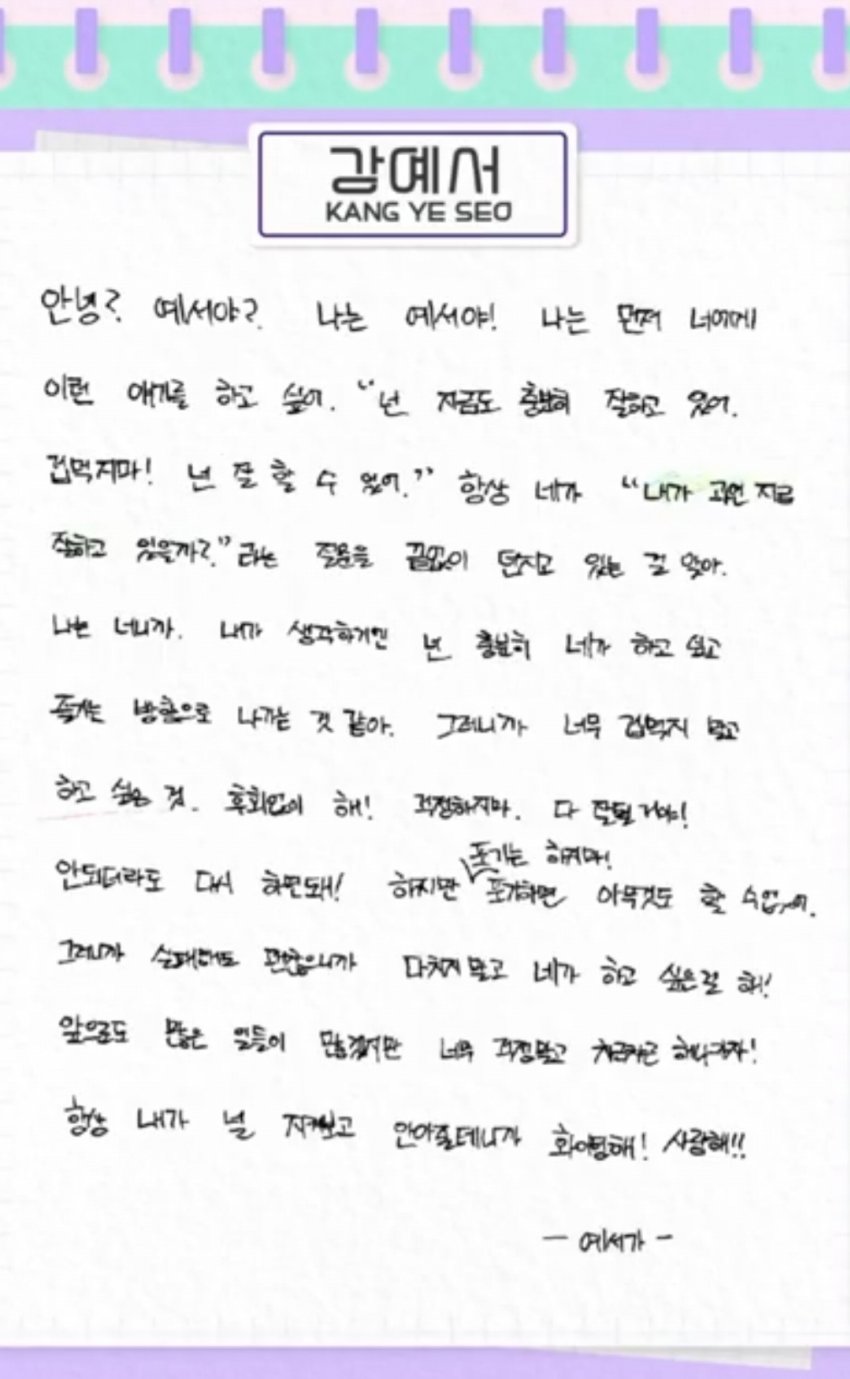 강예서
KANG YE SEO
안녕? 예서야? 나는 예서야! 나는 먼저 너에게
이런 얘기를 하고 싶어. “넌 지금도 충분히 잘하고 있어.
겁먹지마! 넌 잘 할 수 있어.” 항상 네가 “내가 과연 지금
잘하고 있을까?”라는 질문을 끝없이 던지고 있는 걸 알아.
나는 너니까. 내가 생각하기엔 넌 충분히 네가 하고 싶고
즐기는 방향으로 나가는 것 같아. 그러니까 너무 겁먹지 말고
하고 싶은 것. 후회없이 해! 걱정하지마. 다 잘될거야!
포기는 하지마!
안되더라도 다시 하면돼! 하지만 포기하면 아무것도 할 수없어.
그러니까 실패해도 괜찮으니까 다치지 말고 네가 하고 싶은걸 해!
앞으로도 많은 일들이 많겠지만 너무 걱정말고 차근차근 해나가자!
항상 내가 널 지켜보고 안아줄테니까 화이팅해! 사랑해!!
- 예서가 -